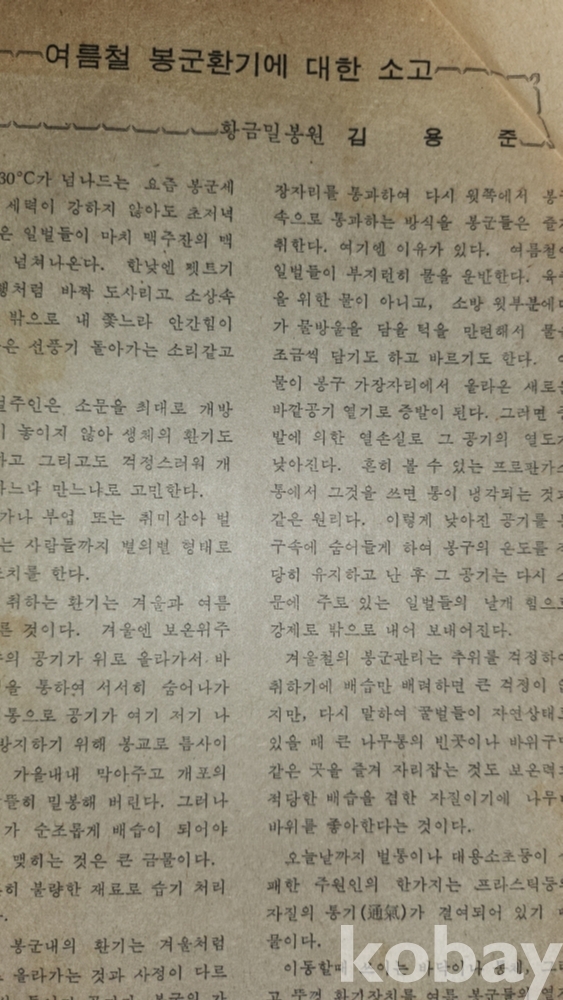 여름철 봉군환기에 대한 소고
황금밀봉원 김 용 준
30°C가 넘나드는 요즘 봉군세
세력이 강하지 않아도 초저녁
은 일벌들이 마치 맥주잔의 맥
넘쳐나온다. 한낮엔 젯트기
행처럼 바짝 도사리고 소상속
밖으로 내 쫓느라 안간힘이
은 선풍기 돌아가는 소리같고
벌주인은 소문을 최대로 개방
놓이지 않아 생체의 환기도
하고 그리고도 걱정스러워 개
하느냐 만느냐로 고민한다.
가나 부업 또는 취미삼아 벌
는 사람들까지 별의별 형태로
치를 한다.
취하는 환기는 겨울과 여름
른 것이다. 겨울엔 보온위주
의 공기가 위로 올라가서 바
을 통하여 서서히 숨어나가
통으로 공기가 여기 저기 나
방지하기 위해 봉교로 틈사이
가을내내 막아주고 개포의
히 밀봉해 버린다. 그러나
가 순조롭게 배습이 되어야
맺히는 것은 큰 금물이다.
히 불량한 재료로 습기 처리
봉군내의 환기는 겨울처럼
올라가는 것과 사정이 다르
장자리를 통과하여 다시 윗쪽에서 봉구
속으로 통과하는 방식을 봉군들은 즐겨
취한다. 여기엔 이유가 있다. 여름철이
일벌들이 부지런히 물을 운반한다. 육
을 위한 물이 아니고, 소방 윗부분에다
가 물방울을 담을 턱을 만련해서 물을
조금씩 담기도 하고 바르기도 한다.
물이 봉구 가장자리에서 올라온 새로운
바깥공기 열기로 증발이 된다. 그러면 증
발에 의한 열손실로 그 공기의 열도가
낮아진다. 흔히 볼 수 있는 프로판가스
통에서 그것을 쓰면 통이 냉각되는 것과
같은 원리다. 이렇게 낮아진 공기를 봉
구속에 숨어들게 하여 봉구의 온도를 적
당히 유지하고 난 후 그 공기는 다시 소
문에 주로 있는 일벌들의 날개 힘으로
강제로 밖으로 내어 보내어진다.
겨울철의 봉군관리는 추위를 걱정하여
취하기에 배습만 배려하면 큰 걱정이 없
지만, 다시 말하여 꿀벌들이 자연상태로
있을 때 큰 나무통의 빈곳이나 바위구멍
같은 곳을 즐겨 자리잡는 것도 보온력과
적당한 배습을 겸한 자질이기에 나무나
바위를 좋아한다는 것이다.
오늘날까지 벌통이나 대용소초등이
패한 주원인의 한가지는 프라스틱등의
자질의 통기(通氣)가 결여되어 있기 때
물이다.
이동할때
고 뚜껑 환기장치를 여름 봉군들의
kobay